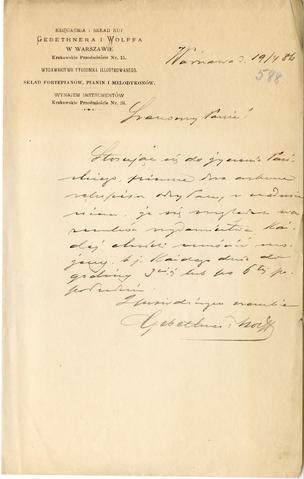 KSIĘGARNIA I SKŁAD NUT
GEBETHNERA I WOLFFA
W WARSZAWIE
Krakowskie Przedmieście Nr. 15.
WYDAWNICTWO TYGODNIKA ILLUSTROWANEGO.
SKŁAD FORTEPIANÓW, PIANIN I MELODYKONÓW.
WYNAJEM INSTRUMENTÓW
Krakowskie Przedmieście Nr. 34.
Warszawa d. 19/4 86
588
Szanowny Panie!
Stosując się do życzenia Pań
skiego, pisane dwa
rękopisu
że ze względu na
wydawnictwa każ
dej chwili mo
żemy, t. j. każdego dnia do
godziny 3ciej lub po 6tej po
południu.
Z prawdziwym szacunkiem
Gebethner i Wolff